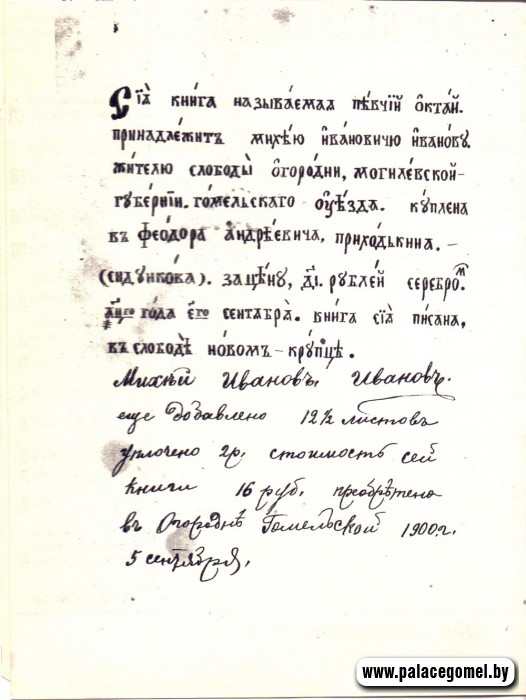 Сїѧ̀ кни́га называ́емаѧ пѣ́вчїй ѻ҆кта́й.
принадле́житъ михе́ю и҆ва́новичю и҆ва́нову
жи́телю слободы̀ ѻ҆горо́дни, могиле́вской-
губе́рнїи. го́мельскаго оу҆ѣ́зда. ку́плена
въ фео́дора а҆ндре́евича, прихо́дькина. –
(сидунко́ва). за цѣ́ну, д҃і. рубле́й серебром
а҆ц҃го го́да є҃го сентѧбрѧ̀. книга сїѧ̀ писана,
въ слободѣ̀ но́вомъ – кру́пцѣ.
Михѣй Ивановъ, Ивановъ.
еще добавлено 12½ листовъ
уплочено 2р. стоимость сей
книги 16 руб. преобрѣтена
въ Огороднѣ Гомельской 1900г.
5 сентября,
www.palacegomel.by